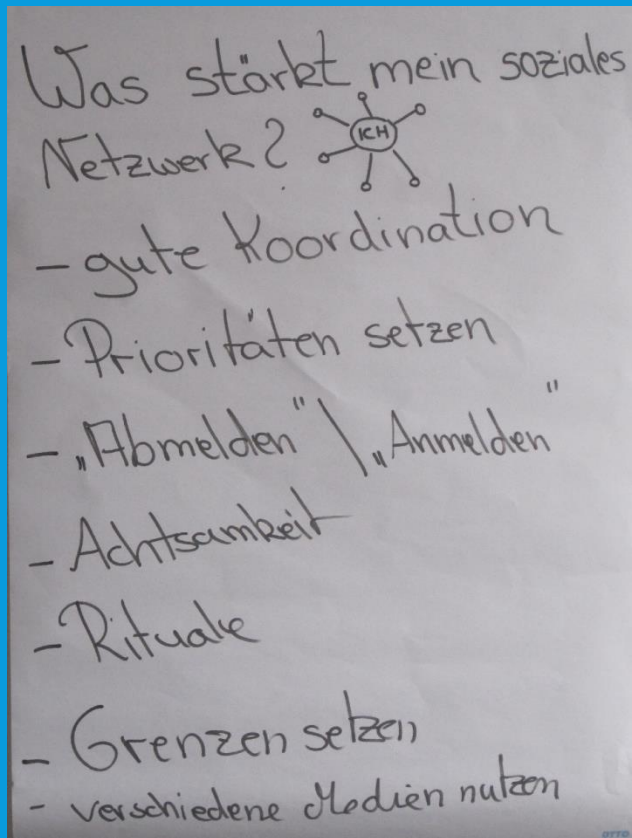 Was stärkt mein soziales
Netzwerk? ICH
- gute Koordination
- Prioritäten setzen
- „Abmelden" \ „Anmelden"
- Achtsamkeit
- Rituale
- Grenzen setzen
- verschiedene Medien nutzen
OTTO